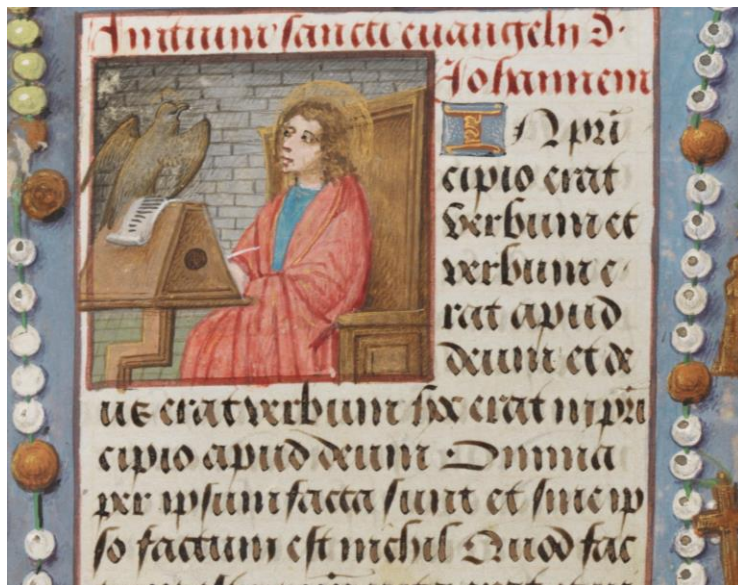 Initium sancti euangelij s̄.
Johannem
IN pri
cipio erat
verbum et
verbum e
rat apud
deum et de
us erat verbum hoc erat in pri
cipio apud deum Omnia
per ipsum facta sunt et sine ip
so factum est nichil Quod fac